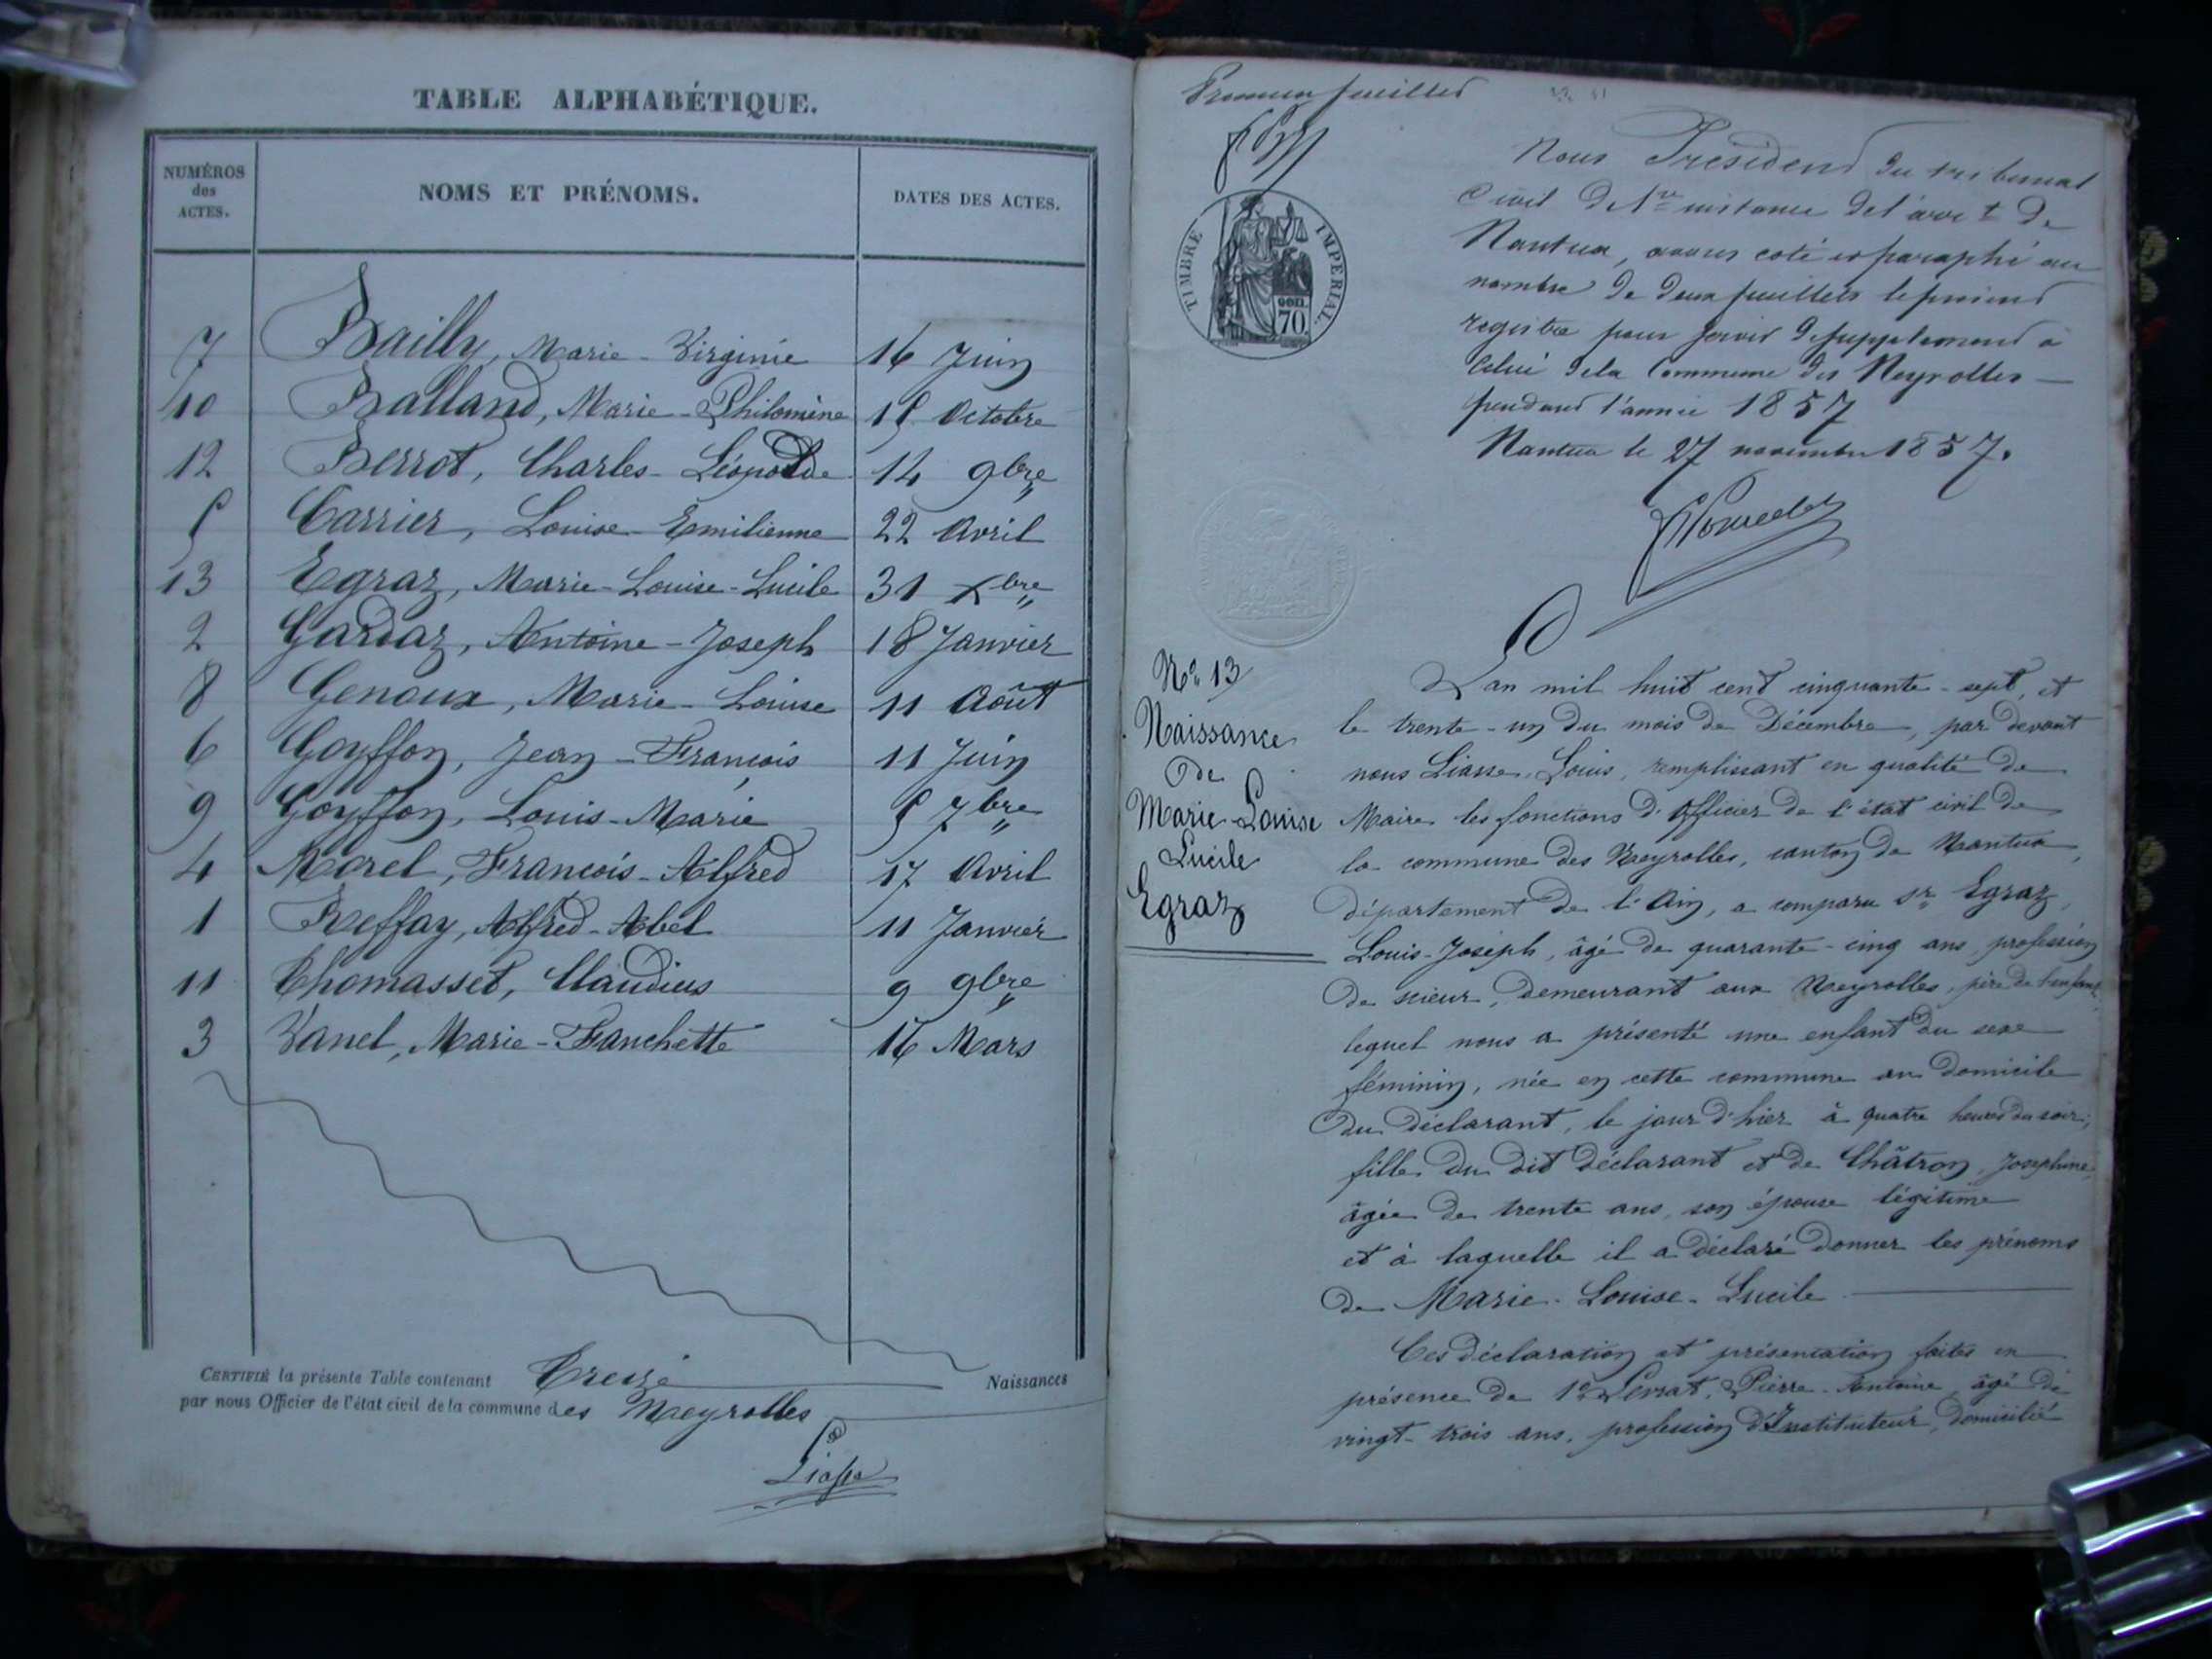 TABLE ALPHABÉTIQUE.
NUMÉROS
des
ACTES.
NOMS ET PRÉNOMS.
DATES DES ACTES.
7 Bailly, Marie-Virginie 16 Juin
10 Balland, Marie-Philomène 15 Octobre
12 Berrot, Charles-Léopolde 14 9bre
5 Carrier, Louise-Emilienne 22 Avril
13 Egraz, Marie-Louise-Lucile 31 Xbre
2 Gardaz, Antoine-Joseph 18 Janvier
8 Genoux, Marie-Louise 11 Août
6 Goyffon, Jean-François 11 Juin
9 Goyffon, Louis-Marie 5 7bre
4 Morel, François-Alfred 17 Avril
1 Reffay, Alfred-Abel 11 Janvier
11 Thomasset, Claudius 9 9bre
3 Vanel, Marie-Franchette 16 Mars
CERTIFIÉ la présente Table contenant Treize Naissances
par nous Officier de l'état civil de la commune des Neyrolles
Liasse
Premier feuillet
TIMBRE IMPERIAL
70
Nous Président du tribunal
Civil de 1re instance de l'arrt de
Nantua, avons coté et paraphé au
nombre de deux feuillets le présent
registre pour servir de supplément à
Celui de la Commune des Neyrolles
pendant l'année 1857
Nantua le 27 novembre 1857.
No 13
Naissance
de
Marie-Louise
Lucile
Egraz
L'an mil huit cent cinquante-sept, et
le trente-un du mois de Décembre, par devant
nous Liasse, Louis, remplissant en qualité de
Maire les fonctions d'officier de l'état civil de
la commune des Neyrolles, canton de Nantua,
département de l'Ain, a comparu Sr Egraz,
Louis-Joseph, âgé de quarante-cinq ans, profession
de scieur, demeurant aux Neyrolles, père de l'enfant,
lequel nous a présenté une enfant du sexe
féminin, née en cette commune au domicile
du déclarant, le jour d'hier à quatre heures du soir,
fille du dit déclarant et de Châtron, Joséphine,
âgée de trente ans, son épouse légitime
et à laquelle il a déclaré donner les prénoms
de Marie-Louise-Lucile
Ces déclaration et présentation faites en
présence de 1o Levrat, Pierre-Antoine, âgé de
vingt-trois ans, profession d'Instituteur, domicilié